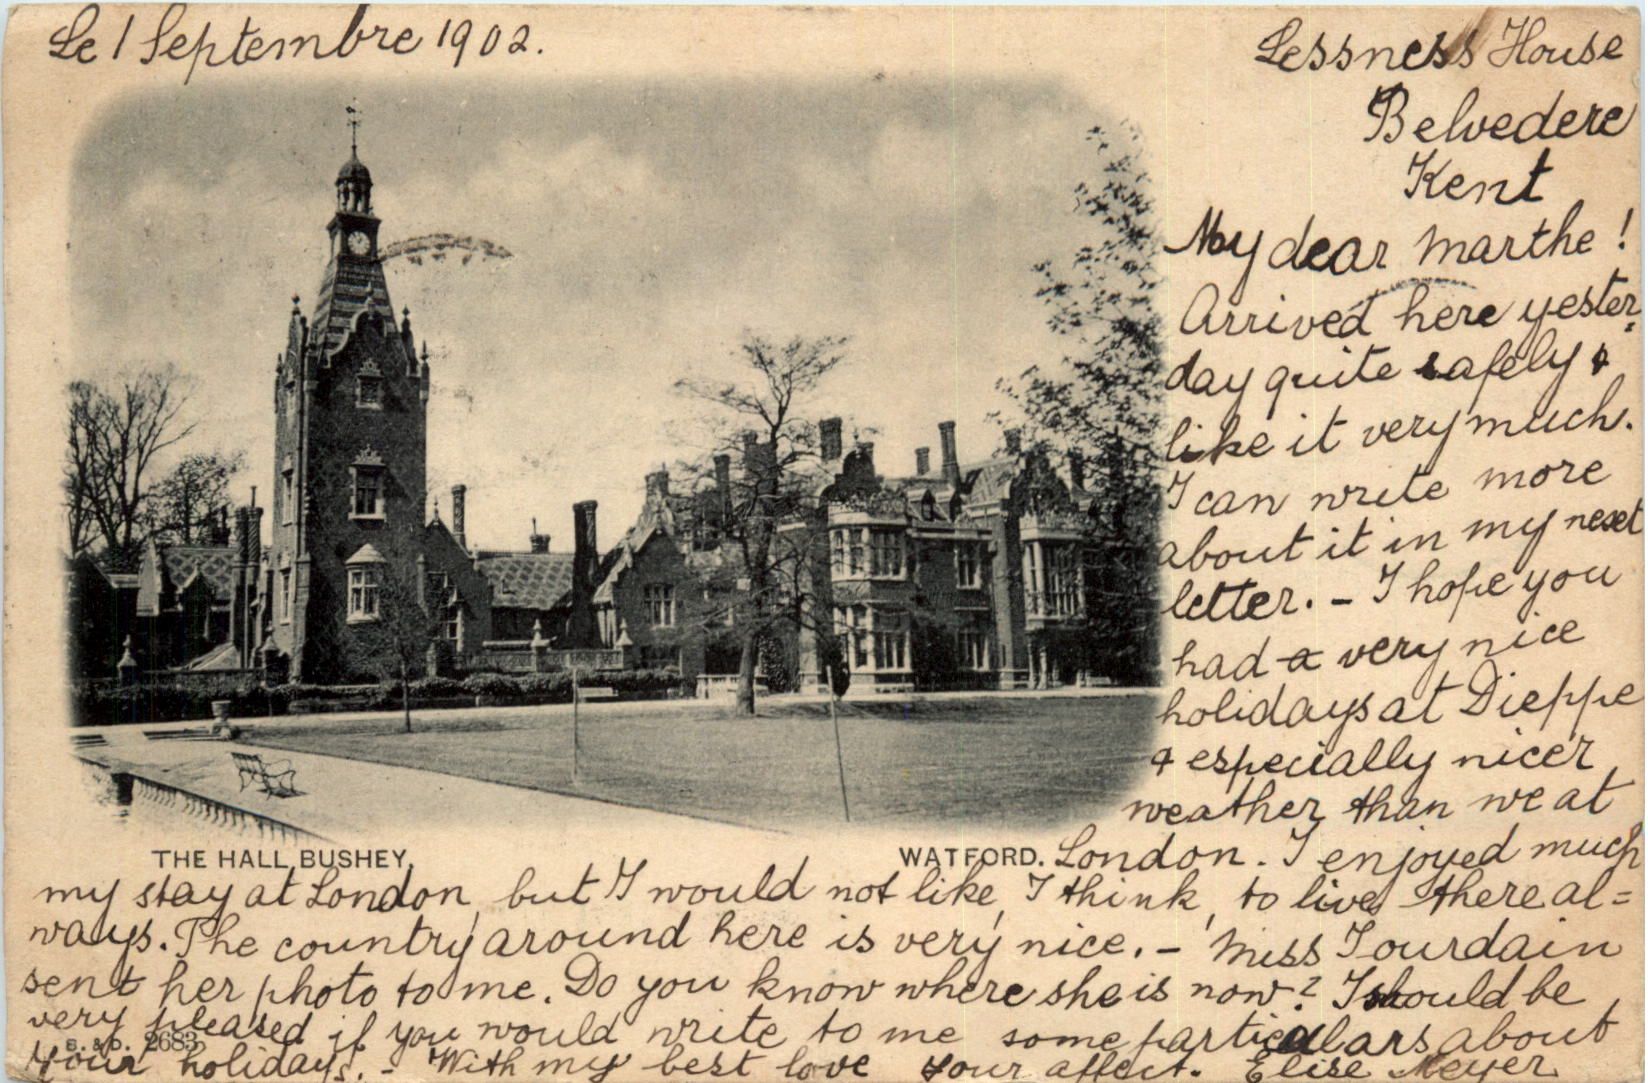 Le 1 Septembre 1902.
Lessness House
Belvedere
Kent
My dear Marthe!
Arrived here yester=
day quite safely &
like it very much.
I can write more
about it in my next
letter. – I hope you
had a very nice
holidays at Dieppe
& especially nicer
weather than we at
THE HALL, BUSHEY,
WATFORD.
London. I enjoyed much
my stay at London, but I would not like, I think, to live there al=
ways. The country around here is very nice. – Miss Jourdain
sent her photo to me. Do you know where she is now? I should be
very pleased if you would write to me some particulars about
S. & D. 2683.
your holidays. – With my best love your affect. Elise Meyer